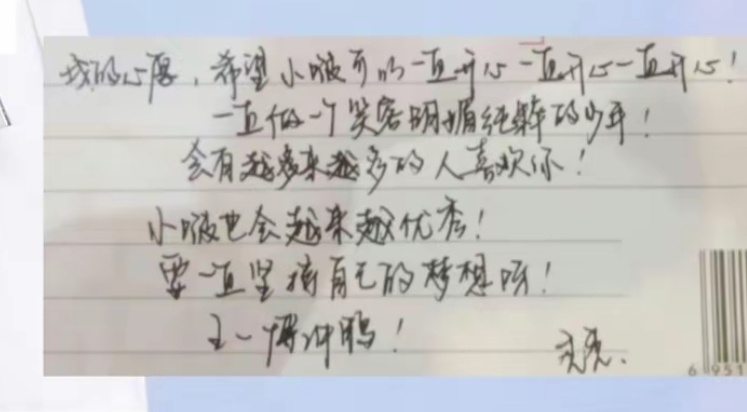 我的心愿,希望小啵可以一直开心一直开心一直开心!
一直做一个笑容明媚纯粹的少年!
会有越来越多的人喜欢你!
小啵也会越来越优秀!
要一直坚持自己的梦想呀!
王一博冲鸭!
6 951